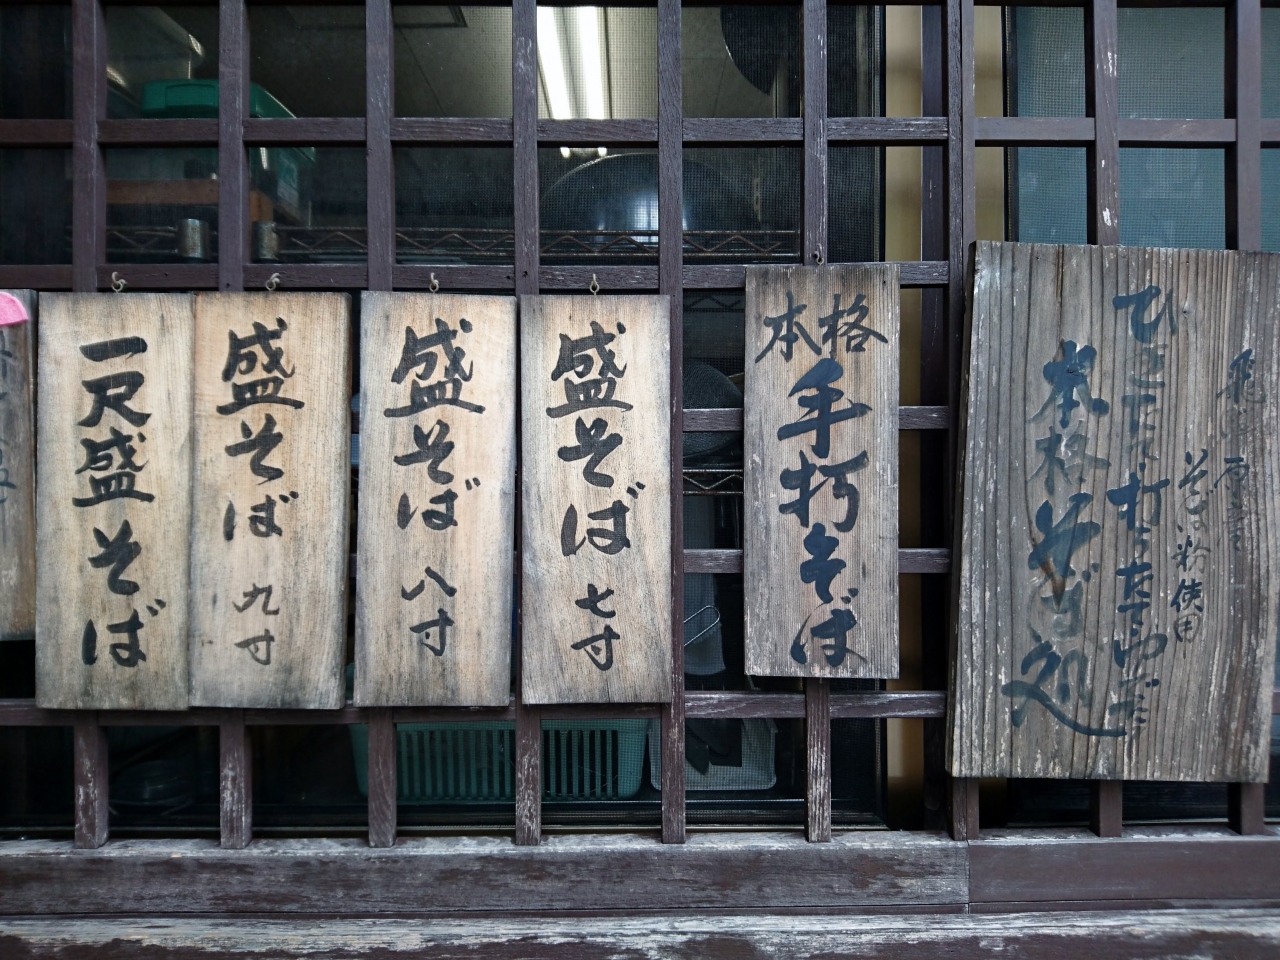 飛騨産
そば粉使用
ひきたて打ちたてゆでたて
本格そば処
本格
手打そば
盛そば 七寸
盛そば 八寸
盛そば 九寸
一尺盛そば